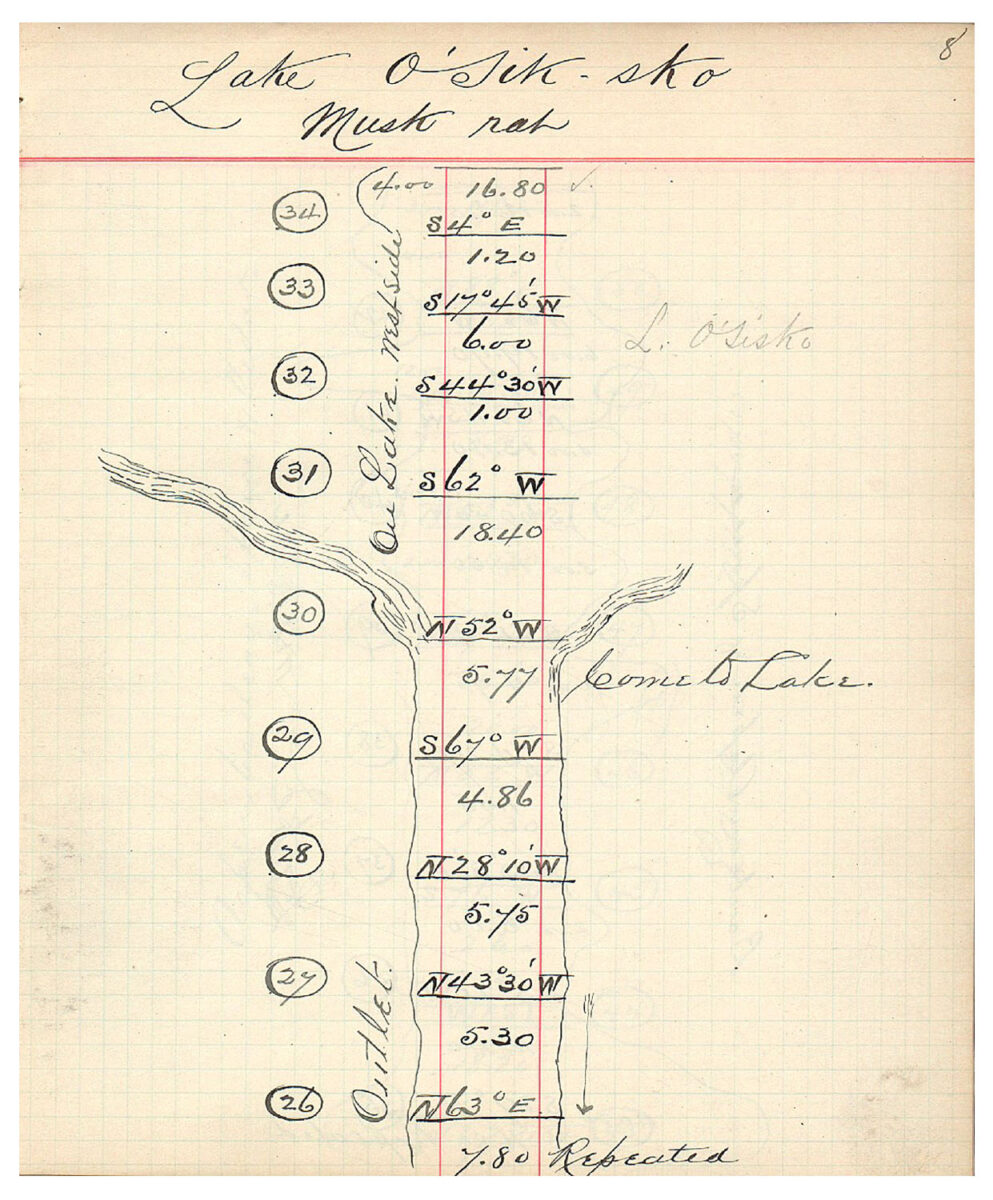 8
Lake O'Sik-sko
Musk rat
4.00 16.80
34 S 4° E
1.20
33 S 17° 45' W
6.00
L. O'Sisko
32 S 44° 30' W
1.00
On Lake West side
31 S 62° W
18.40
30 N 52° W
5.77 Come to Lake.
29 S 67° W
4.86
28 N 28° 10' W
5.75
27 N 43° 30' W
5.30
Outlet
26 N 63° E
7.80 Repeated